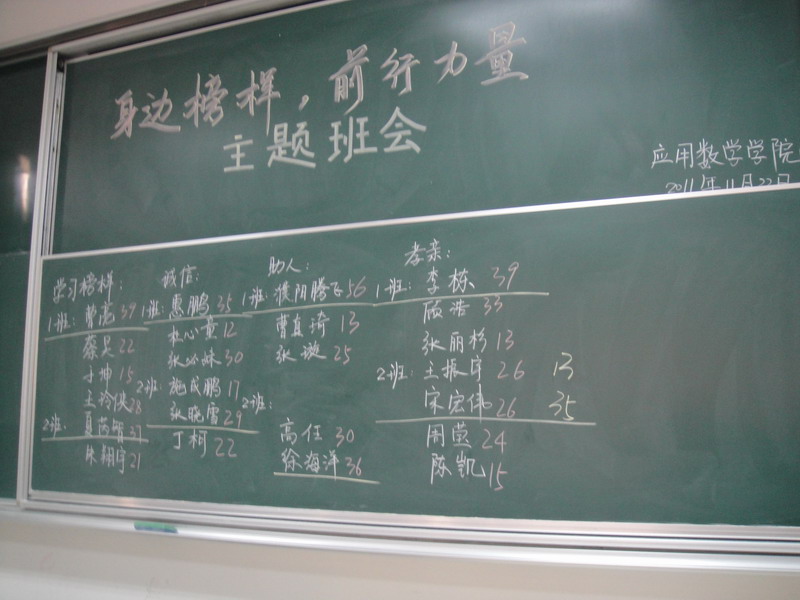 身边榜样，前行力量
主题班会
应用数学学院
2011年11月22日
学习榜样：
1班：曹 39
蔡昊 22
于坤 15
王玲侠 28
2班：夏 37
朱翔宇 21
诚信：
1班：惠鹏 35
杜心童 12
张 妹 30
2班：施成鹏 17
张晓雪 29
丁柯 22
助人：
1班：濮阳腾飞 56
曹真琦 13
张漩 25
2班：
高任 30
徐海洋 36
孝亲：
1班：李栋 39
顾浩 33
张丽杉 13
2班：王振宇 26 13
宋宏伟 26 35
周萱 24
陈凯 15